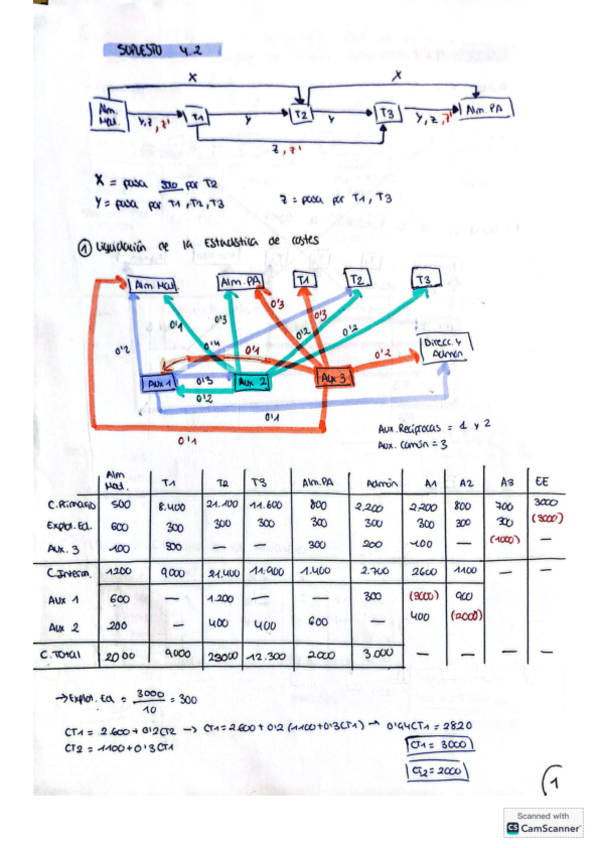 SUPUESTO 4.2
X X
Alm. Mat. Y,Z,Z' T1 Y T2 Y T3 Y,Z,Z' Alm. PA
Z,Z'
X = pasa solo por T2
Y = pasa por T1, T2, T3 Z = pasa por T1, T3
① Liquidación de la Estadística de costes
Alm Mat. Alm. PA T1 T2 T3
0'3
0'1 0'3 0'3
0'2 0'4 0'1 0'2 0'2 0'2 Direcc. y Admón
Aux 1 0'3 Aux 2 Aux 3
0'2
0'1
0'1
Aux. Recíprocas = 1 y 2
Aux. Común = 3
Alm Mat. T1 T2 T3 Alm. PA Admón A1 A2 A3 EE
C. Primario 500 8.400 21.100 11.600 800 2.200 2.200 800 700 3000
Explot. Ed. 600 300 300 300 300 300 300 300 300 (3000)
Aux. 3 100 300 — — 300 200 100 — (1000) —
C. Interm. 1200 9000 21.400 11.900 1.400 2.700 2600 1100 — —
Aux 1 600 — 1.200 — — 300 (3000) 900
Aux 2 200 — 400 400 600 — 400 (2000)
C. TOTAL 2000 9000 23000 12.300 2000 3.000 — — — —
→ Explot. Ed = 3000/10 = 300
CT1 = 2.600 + 0'2CT2 → CT1 = 2.600 + 0'2 (1100 + 0'3CT1) → 0'94CT1 = 2820
CT2 = 1100 + 0'3CT1 CT1 = 3000
CT2 = 2000
1
Scanned with
CS CamScanner